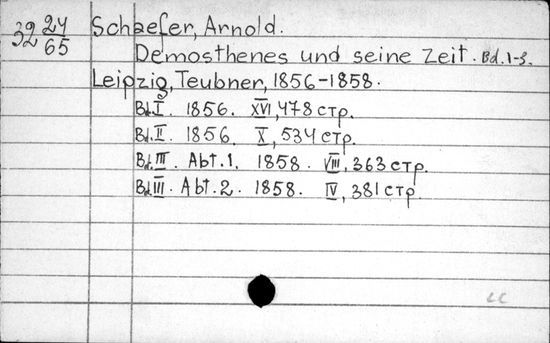 32 24/65
Schaefer, Arnold.
Demosthenes und seine Zeit. Bd. 1-3.
Leipzig, Teubner, 1856-1858.
Bd. I. 1856. XVI, 478 стр.
Bd. II. 1856. X, 534 стр.
Bd. III. Abt. 1. 1858. VIII, 363 стр.
Bd. III. Abt. 2. 1858. IV, 381 стр.